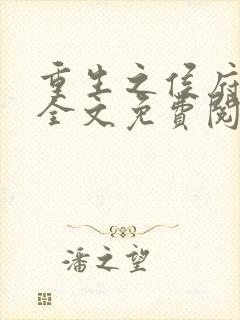 重生之侯府
全文免費閱
潘之望